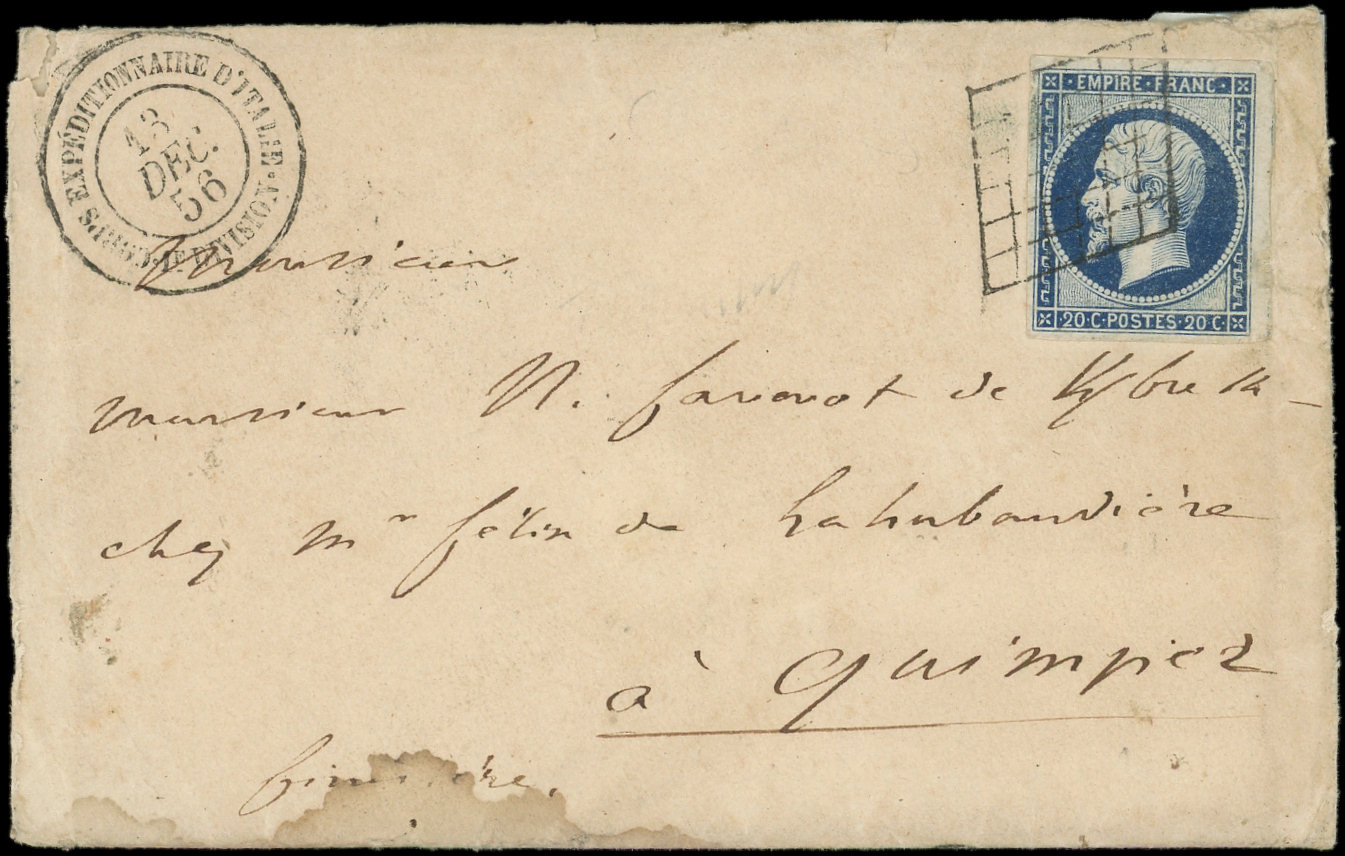 CORPS EXPÉDITIONNAIRE D'ITALIE · 1E DIVISION ·
13
DEC.
56
EMPIRE · FRANC ·
20 · C · POSTES · 20 C ·
Monsieur
monsieur N. favorot de
chez Mr félix de Lahubaudière
à quimper